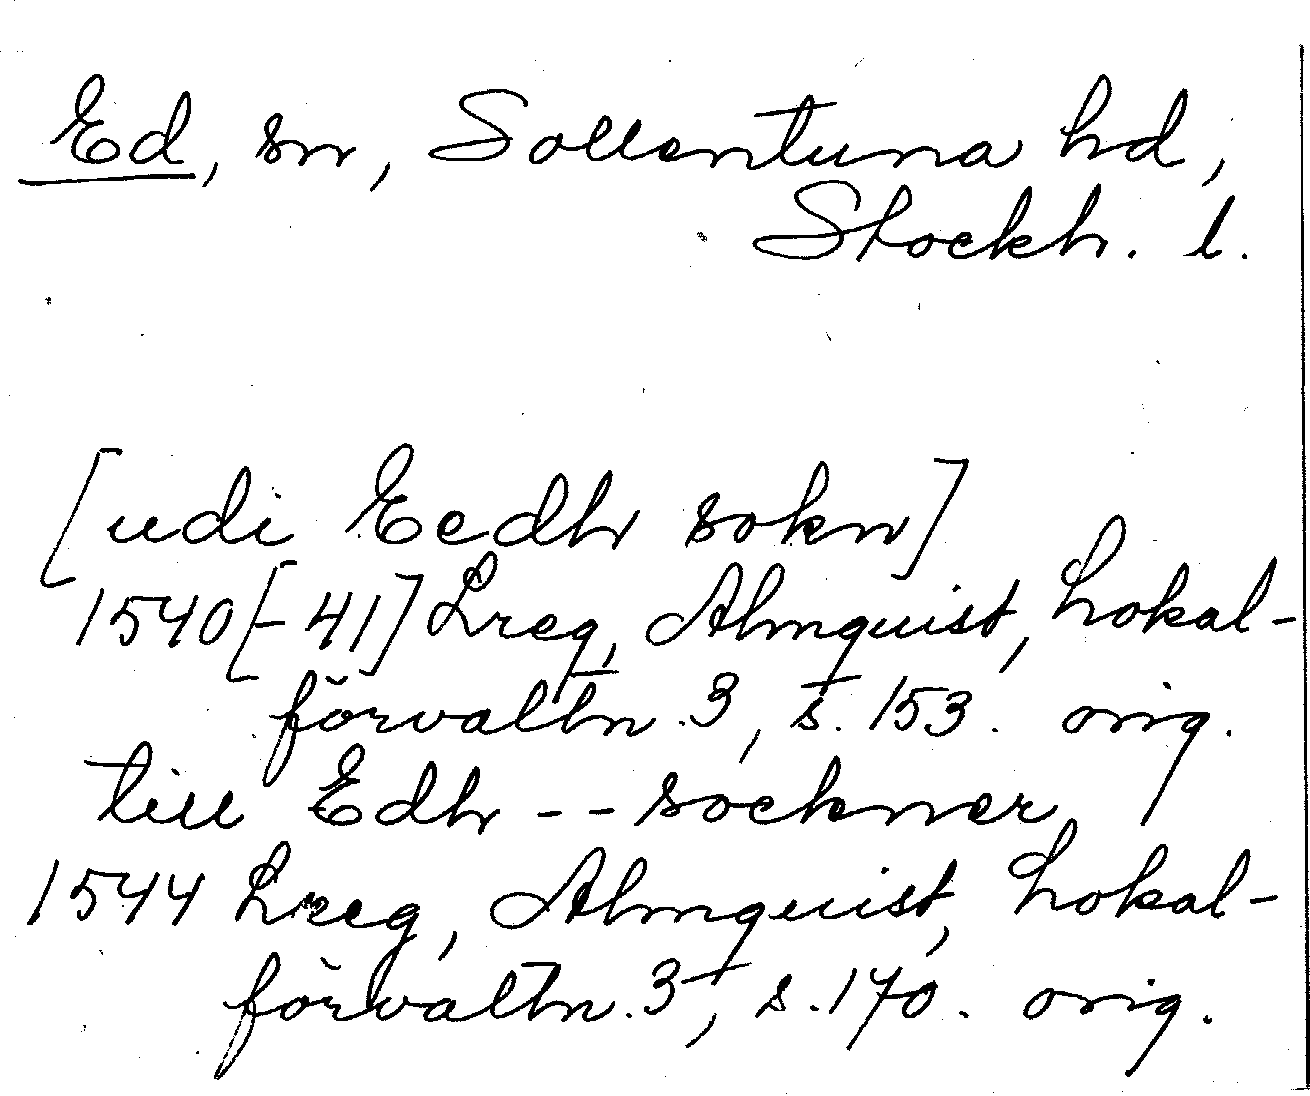 Ed, sn, Sollentuna hd,
Stockh. l.
[udi Eedh sokn]
1540[-41] Lreg, Almquist, Lokal-
förvaltn. 3, s. 153. orig.
till Edh -- sockner
1544 Lreg, Almquist, Lokal-
förvaltn. 3, s. 170. orig.